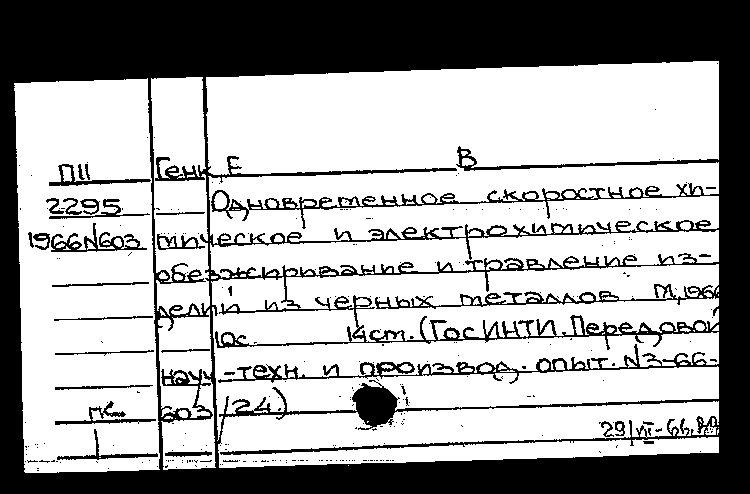 П11 Генк Е В
2295 Одновременное скоростное хи-
1966N603 мическое и электрохимическое
обезжиривание и травление из-
делий из черных металлов. М, 1966
10с. 14см. (ГосИНТИ. Передовой
науч-техн. и производ. опыт. N3-66-
603/24.)